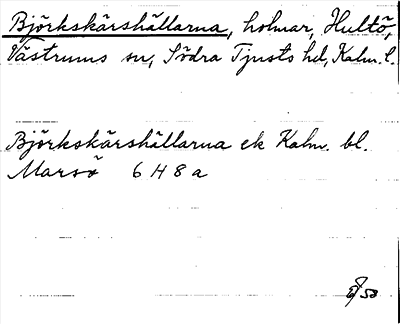 Björkskärshällarna, holmar, Hultö,
Västrums sn, Södra Tjusts hd, Kalm. l.
Björkskärshällarna ek Kalm. bl.
Marsö 6 H 8 a